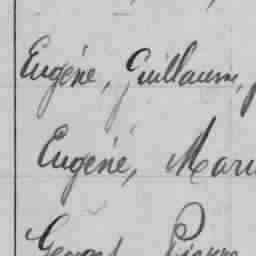 Eugéne, Guillaum,
Eugéné, Mari
Georges Pierre